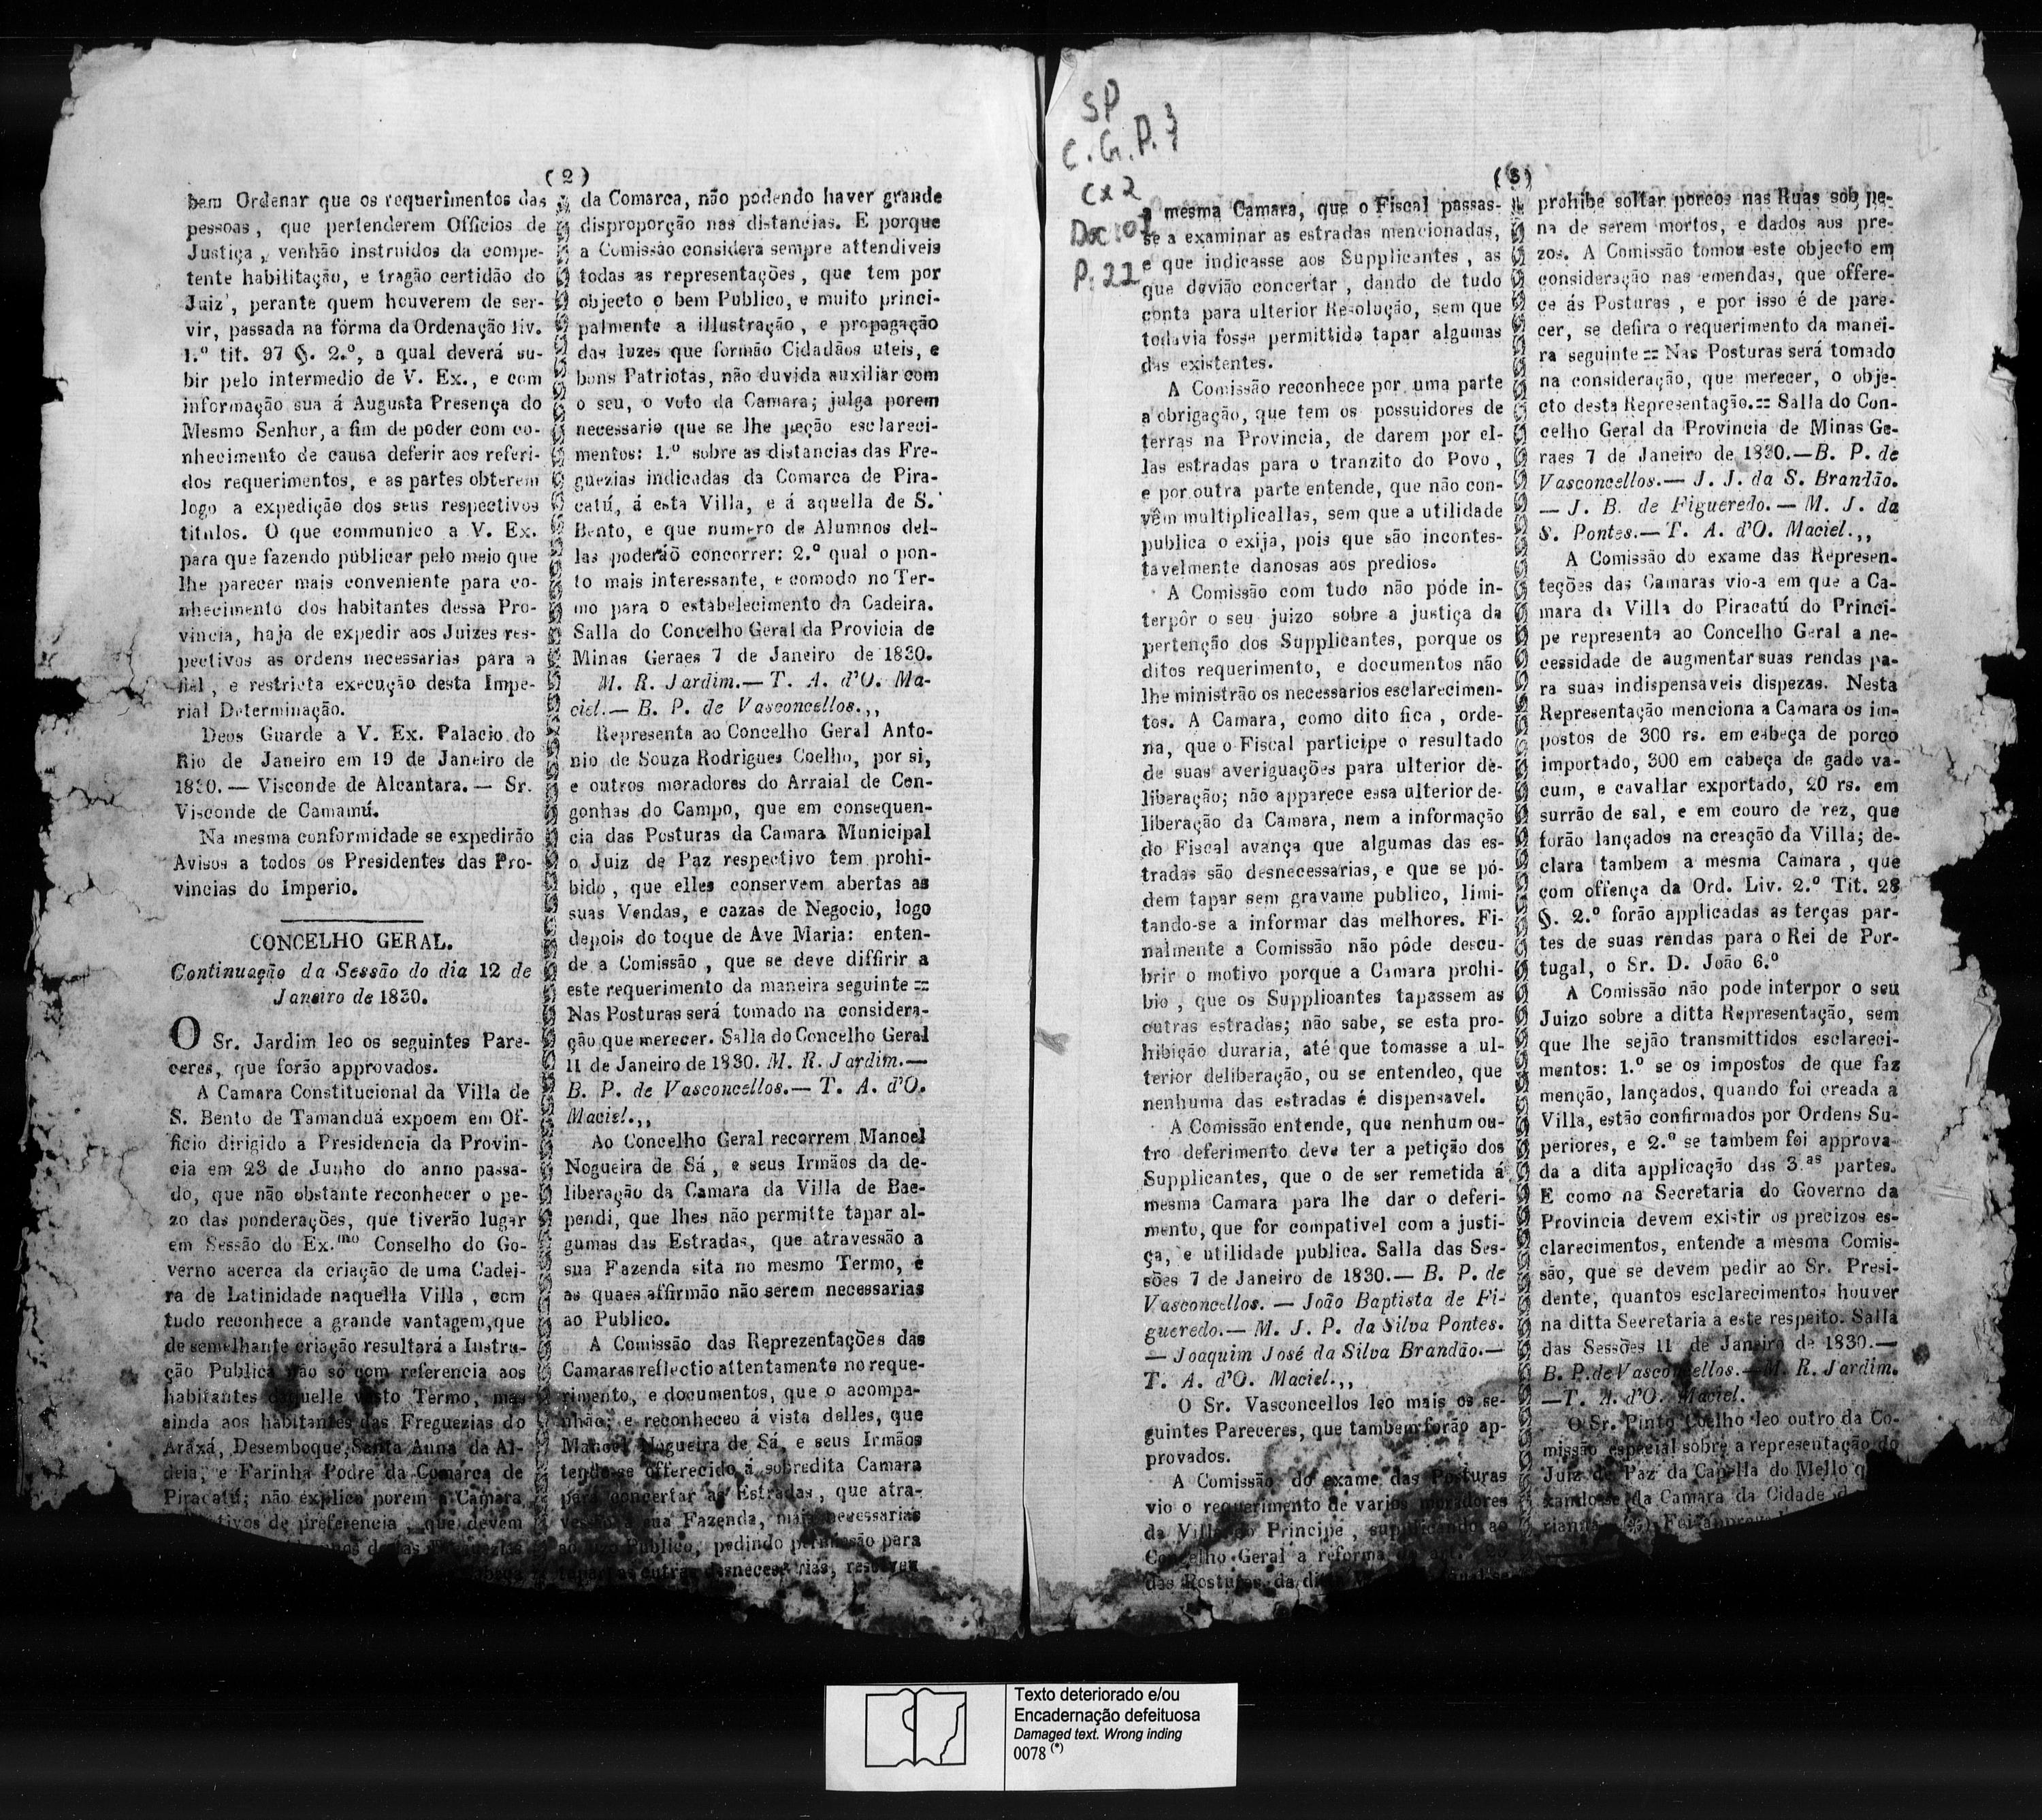 (2)
bem Ordenar que os requerimentos das
pessoas, que pertenderem Officios de
Justiça, venhão instruidos da compe-
tente habilitação, e tragão certidão do
Juiz, perante quem houverem de ser-
vir, passada na fórma da Ordenação liv.
1.º tit. 97 §. 2.º, a qual deverá su-
bir pelo intermedio de V. Ex., e com
informação sua á Augusta Presença do
Mesmo Senhor, a fim de poder com co-
nhecimento de causa deferir aos referi-
dos requerimentos, e as partes obterem
logo a expedição dos seus respectivos
titulos. O que communico a V. Ex.
para que fazendo publicar pelo meio que
lhe parecer mais conveniente para co-
nhecimento dos habitantes dessa Pro-
vincia, haja de expedir aos Juizes res-
pectivos as ordens necessarias para a
fiel, e restricta execução desta Impe-
rial Determinação.
Deos Guarde a V. Ex. Palacio do
Rio de Janeiro em 19 de Janeiro de
1830. — Visconde de Alcantara. — Sr.
Visconde de Camamú.
Na mesma conformidade se expedirão
Avisos a todos os Presidentes das Pro-
vincias do Imperio.
CONCELHO GERAL.
Continuação da Sessão do dia 12 de
Janeiro de 1830.
O Sr. Jardim leo os seguintes Pare-
ceres, que forão approvados.
A Camara Constitucional da Villa de
S. Bento de Tamanduá expoem em Of-
ficio dirigido a Presidencia da Provin-
cia em 23 de Junho do anno passa-
do, que não obstante reconhecer o pe-
zo das ponderações, que tiverão lugar
em Sessão do Ex.mo Conselho do Go-
verno acerca da criação de uma Cadei-
ra de Latinidade naquella Villa, com
tudo reconhece a grande vantagem, que
de semelhante criação resultará a Instru-
ção Publica não só com referencia aos
habitantes daquelle vasto Termo, mas
ainda aos habitantes das Freguezias do
Araxá, Desemboque, Santa Anna da Al-
deia, e Farinha Podre da Comarca de
Piracatú; não explica porem a Camara
de preferencia, que devem
da Comarca, não podendo haver grande
disproporção nas distancias. E porque
a Comissão considera sempre attendiveis
todas as representações, que tem por
objecto o bem Publico, e muito princi-
palmente a illustração, e propagação
das luzes que formão Cidadãos uteis, e
bons Patriotas, não duvida auxiliar com
o seu, o voto da Camara; julga porem
necessario que se lhe peção esclareci-
mentos: 1.º sobre as distancias das Fre-
guezias indicadas da Comarca de Pira-
catú, á esta Villa, e á aquella de S.
Bento, e que numero de Alumnos del-
las poderáõ concorrer: 2.º qual o pon-
to mais interessante, e comodo no Ter-
mo para o estabelecimento da Cadeira.
Salla do Concelho Geral da Provicia de
Minas Geraes 7 de Janeiro de 1830.
M. R. Jardim.— T. A. d'O. Ma-
ciel.— B. P. de Vasconcellos.,,
Representa ao Concelho Geral Anto-
nio de Souza Rodrigues Coelho, por si,
e outros moradores do Arraial de Con-
gonhas do Campo, que em consequen-
cia das Posturas da Camara Municipal
o Juiz de Paz respectivo tem prohi-
bido, que elles conservem abertas as
suas Vendas, e cazas de Negocio, logo
depois do toque de Ave Maria: enten-
de a Comissão, que se deve diffirir a
este requerimento da maneira seguinte =
Nas Posturas será tomado na considera-
ção que merecer. Salla do Concelho Geral
11 de Janeiro de 1830. M. R. Jardim.—
B. P. de Vasconcellos.— T. A. d'O.
Maciel.,,
Ao Concelho Geral recorrem Manoel
Nogueira de Sá, e seus Irmãos da de-
liberação da Camara da Villa de Bae-
pendi, que lhes não permitte tapar al-
gumas das Estradas, que atravessão a
sua Fazenda sita no mesmo Termo, e
as quaes affirmão não serem necessarias
ao Publico.
A Comissão das Reprezentações das
Camaras reflectio attentamente no reque-
rimento, e documentos, que o acompa-
nhão; e reconheceo á vista delles, que
Manoel Nogueira de Sá, e seus Irmãos
tendo-se offerecido á sobredita Camara
para concertar as Estradas, que atra-
vessão a sua Fazenda, mais necessarias
ao uzo Publico, pedindo permissão para
tapar as outras desnecessarias, resolveu
SP
C.G.P. 3
cx 2
Doc:02
P:22
(3)
a mesma Camara, que o Fiscal passas-
se a examinar as estradas mencionadas,
e que indicasse aos Supplicantes, as
que devião concertar, dando de tudo
conta para ulterior Resolução, sem que
todavia fosse permittido tapar algumas
das existentes.
A Comissão reconhece por uma parte
a obrigação, que tem os possuidores de
terras na Provincia, de darem por el-
las estradas para o tranzito do Povo,
e por outra parte entende, que não con-
vêm multiplicallas, sem que a utilidade
publica o exija, pois que são incontes-
tavelmente danosas aos predios.
A Comissão com tudo não póde in-
terpôr o seu juizo sobre a justiça da
pertenção dos Supplicantes, porque os
ditos requerimento, e documentos não
lhe ministrão os necessarios esclarecimen-
tos. A Camara, como dito fica, orde-
na, que o Fiscal participe o resultado
de suas averiguações para ulterior de-
liberação; não apparece essa ulterior de-
liberação da Camara, nem a informação
do Fiscal avança que algumas das es-
tradas são desnecessarias, e que se pó-
dem tapar sem gravame publico, limi-
tando-se a informar das melhores. Fi-
nalmente a Comissão não póde descu-
brir o motivo porque a Camara prohi-
bio, que os Supplicantes tapassem as
outras estradas; não sabe, se esta pro-
hibição duraria, até que tomasse a ul-
terior deliberação, ou se entendeo, que
nenhuma das estradas é dispensavel.
A Comissão entende, que nenhum ou-
tro deferimento deve ter a petição dos
Supplicantes, que o de ser remetida á
mesma Camara para lhe dar o deferi-
mento, que for compativel com a justi-
ça, e utilidade publica. Salla das Ses-
sões 7 de Janeiro de 1830.— B. P. de
Vasconcellos. — João Baptista de Fi-
gueredo.— M. J. P. da Silva Pontes.
— Joaquim José da Silva Brandão.—
T. A. d'O. Maciel.,,
O Sr. Vasconcellos leo mais os se-
guintes Pareceres, que tambem forão ap-
provados.
A Comissão do exame das Posturas
vio o requerimento de varios moradores
da Villa do Principe, supplicando ao
Concelho Geral a reforma
das Posturas da dita
prohibe soltar porcos nas Ruas sob pe-
na de serem mortos, e dados aos pre-
zos. A Comissão tomou este objecto em
consideração nas emendas, que offere-
ce ás Posturas, e por isso é de pare-
cer, se defira o requerimento da manei-
ra seguinte = Nas Posturas será tomado
na consideração, que merecer, o obje-
cto desta Representação.= Salla do Con-
celho Geral da Provincia de Minas Ge-
raes 7 de Janeiro de 1830.—B. P. de
Vasconcellos.— J. J. da S. Brandão.
— J. B. de Figueredo.— M. J. da
S. Pontes.— T. A. d'O. Maciel.,,
A Comissão do exame das Represen-
teções das Camaras vio-a em que a Ca-
mara da Villa do Piracatú do Princi-
pe representa ao Concelho Geral a ne-
cessidade de augmentar suas rendas pa-
ra suas indispensaveis dispezas. Nesta
Representação menciona a Camara os im-
postos de 300 rs. em cabeça de porco
importado, 300 em cabeça de gado va-
cum, e cavallar exportado, 20 rs. em
surrão de sal, e em couro de rez, que
forão lançados na creação da Villa; de-
clara tambem a mesma Camara, que
com offença da Ord. Liv. 2.º Tit. 28
§. 2.º forão applicadas as terças par-
tes de suas rendas para o Rei de Por-
tugal, o Sr. D. João 6.º
A Comissão não pode interpor o seu
Juizo sobre a ditta Representação, sem
que lhe sejão transmittidos esclareci-
mentos: 1.º se os impostos de que faz
menção, lançados, quando foi creada a
Villa, estão confirmados por Ordens Su-
periores, e 2.º se tambem foi approva-
da a dita applicação das 3.as partes.
E como na Secretaria do Governo da
Provincia devem existir os precizos es-
clarecimentos, entende a mesma Comis-
são, que se devem pedir ao Sr. Presi-
dente, quantos esclarecimentos houver
na ditta Secretaria a este respeito. Salla
das Sessões 11 de Janeiro de 1830.—
B. P. de Vasconcellos.—M. R. Jardim.
—T. A. d'O. Maciel.
O Sr. Pinto Coelho leo outro da Co-
missão especial sobre a representação do
Juiz de Paz da Capella do Mello
xando-se da Camara da Cidade
rianna (*) Foi
Texto deteriorado e/ou
Encadernação defeituosa
Damaged text. Wrong inding
0078 (*)